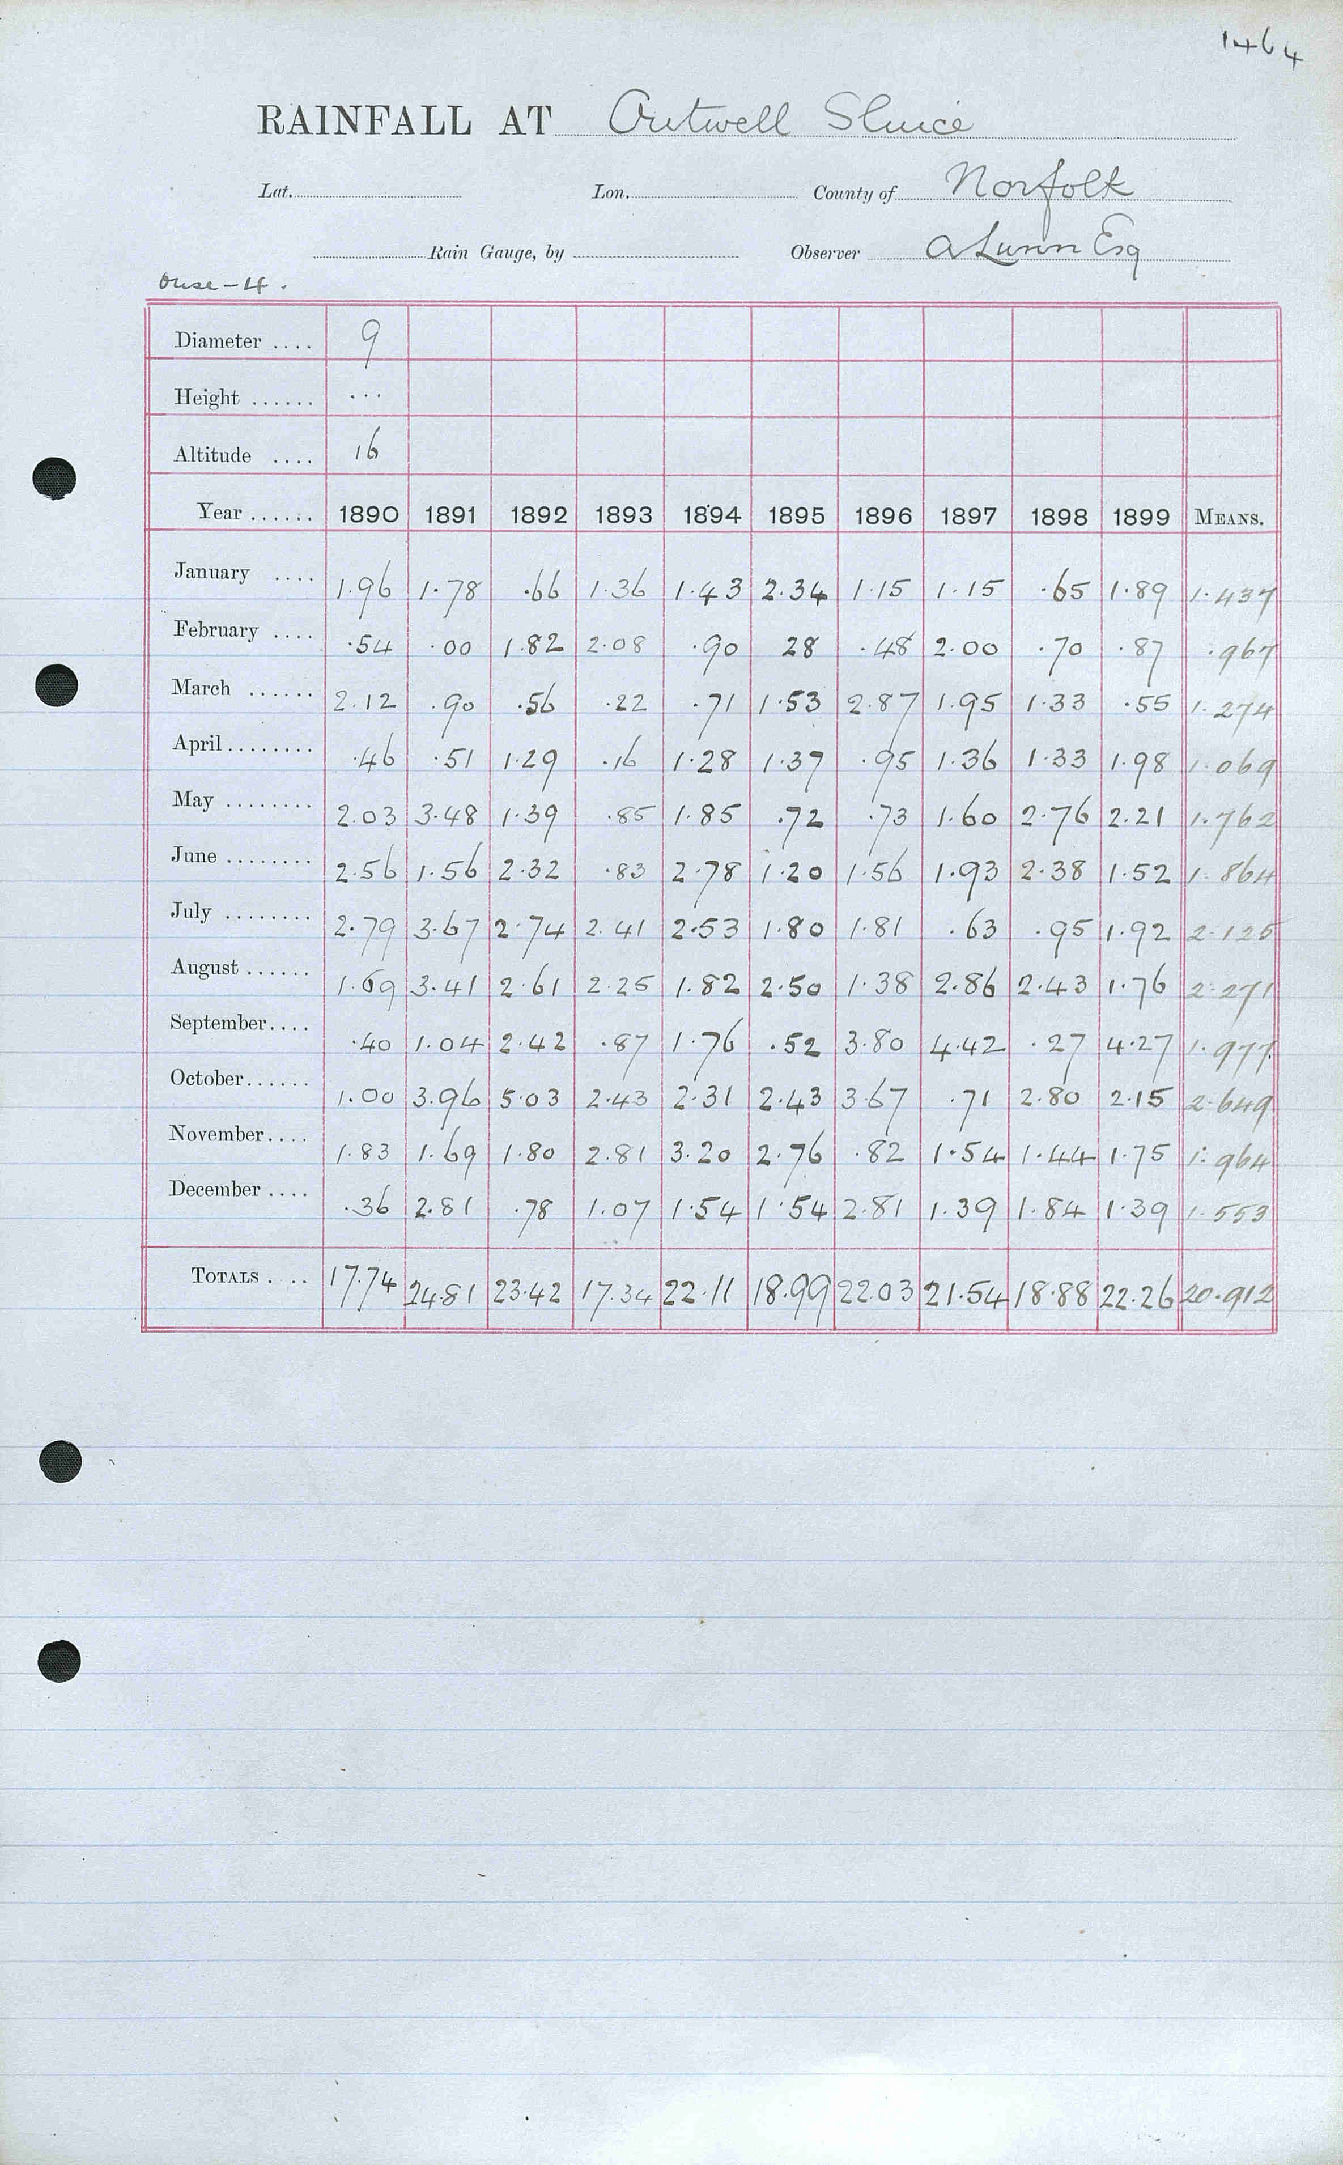 1464
RAINFALL AT Outwell Sluice
Lat. Lon. County of Norfolk
Rain Gauge, by Observer A Lunn Esq
Ouse - 4.
Diameter .... 9
Height ...... ...
Altitude .... 16
Year ...... 1890 1891 1892 1893 1894 1895 1896 1897 1898 1899 MEANS.
January .... 1.96 1.78 .66 1.36 1.43 2.34 1.15 1.15 .65 1.89 1.437
February .... .54 .00 1.82 2.08 .90 28 .48 2.00 .70 .87 .967
March ...... 2.12 .90 .56 .22 .71 1.53 2.87 1.95 1.33 .55 1.274
April ........ .46 .51 1.29 .16 1.28 1.37 .95 1.36 1.33 1.98 1.069
May ........ 2.03 3.48 1.39 .85 1.85 .72 .73 1.60 2.76 2.21 1.762
June ........ 2.56 1.56 2.32 .83 2.78 1.20 1.56 1.93 2.38 1.52 1.864
July ........ 2.79 3.67 2.74 2.41 2.53 1.80 1.81 .63 .95 1.92 2.125
August ...... 1.69 3.41 2.61 2.25 1.82 2.50 1.38 2.86 2.43 1.76 2.271
September .... .40 1.04 2.42 .87 1.76 .52 3.80 4.42 .27 4.27 1.977
October ...... 1.00 3.96 5.03 2.43 2.31 2.43 3.67 .71 2.80 2.15 2.649
November .... 1.83 1.69 1.80 2.81 3.20 2.76 .82 1.54 1.44 1.75 1.964
December .... .36 2.81 .78 1.07 1.54 1.54 2.81 1.39 1.84 1.39 1.553
TOTALS .... 17.74 24.81 23.42 17.34 22.11 18.99 22.03 21.54 18.88 22.26 20.912